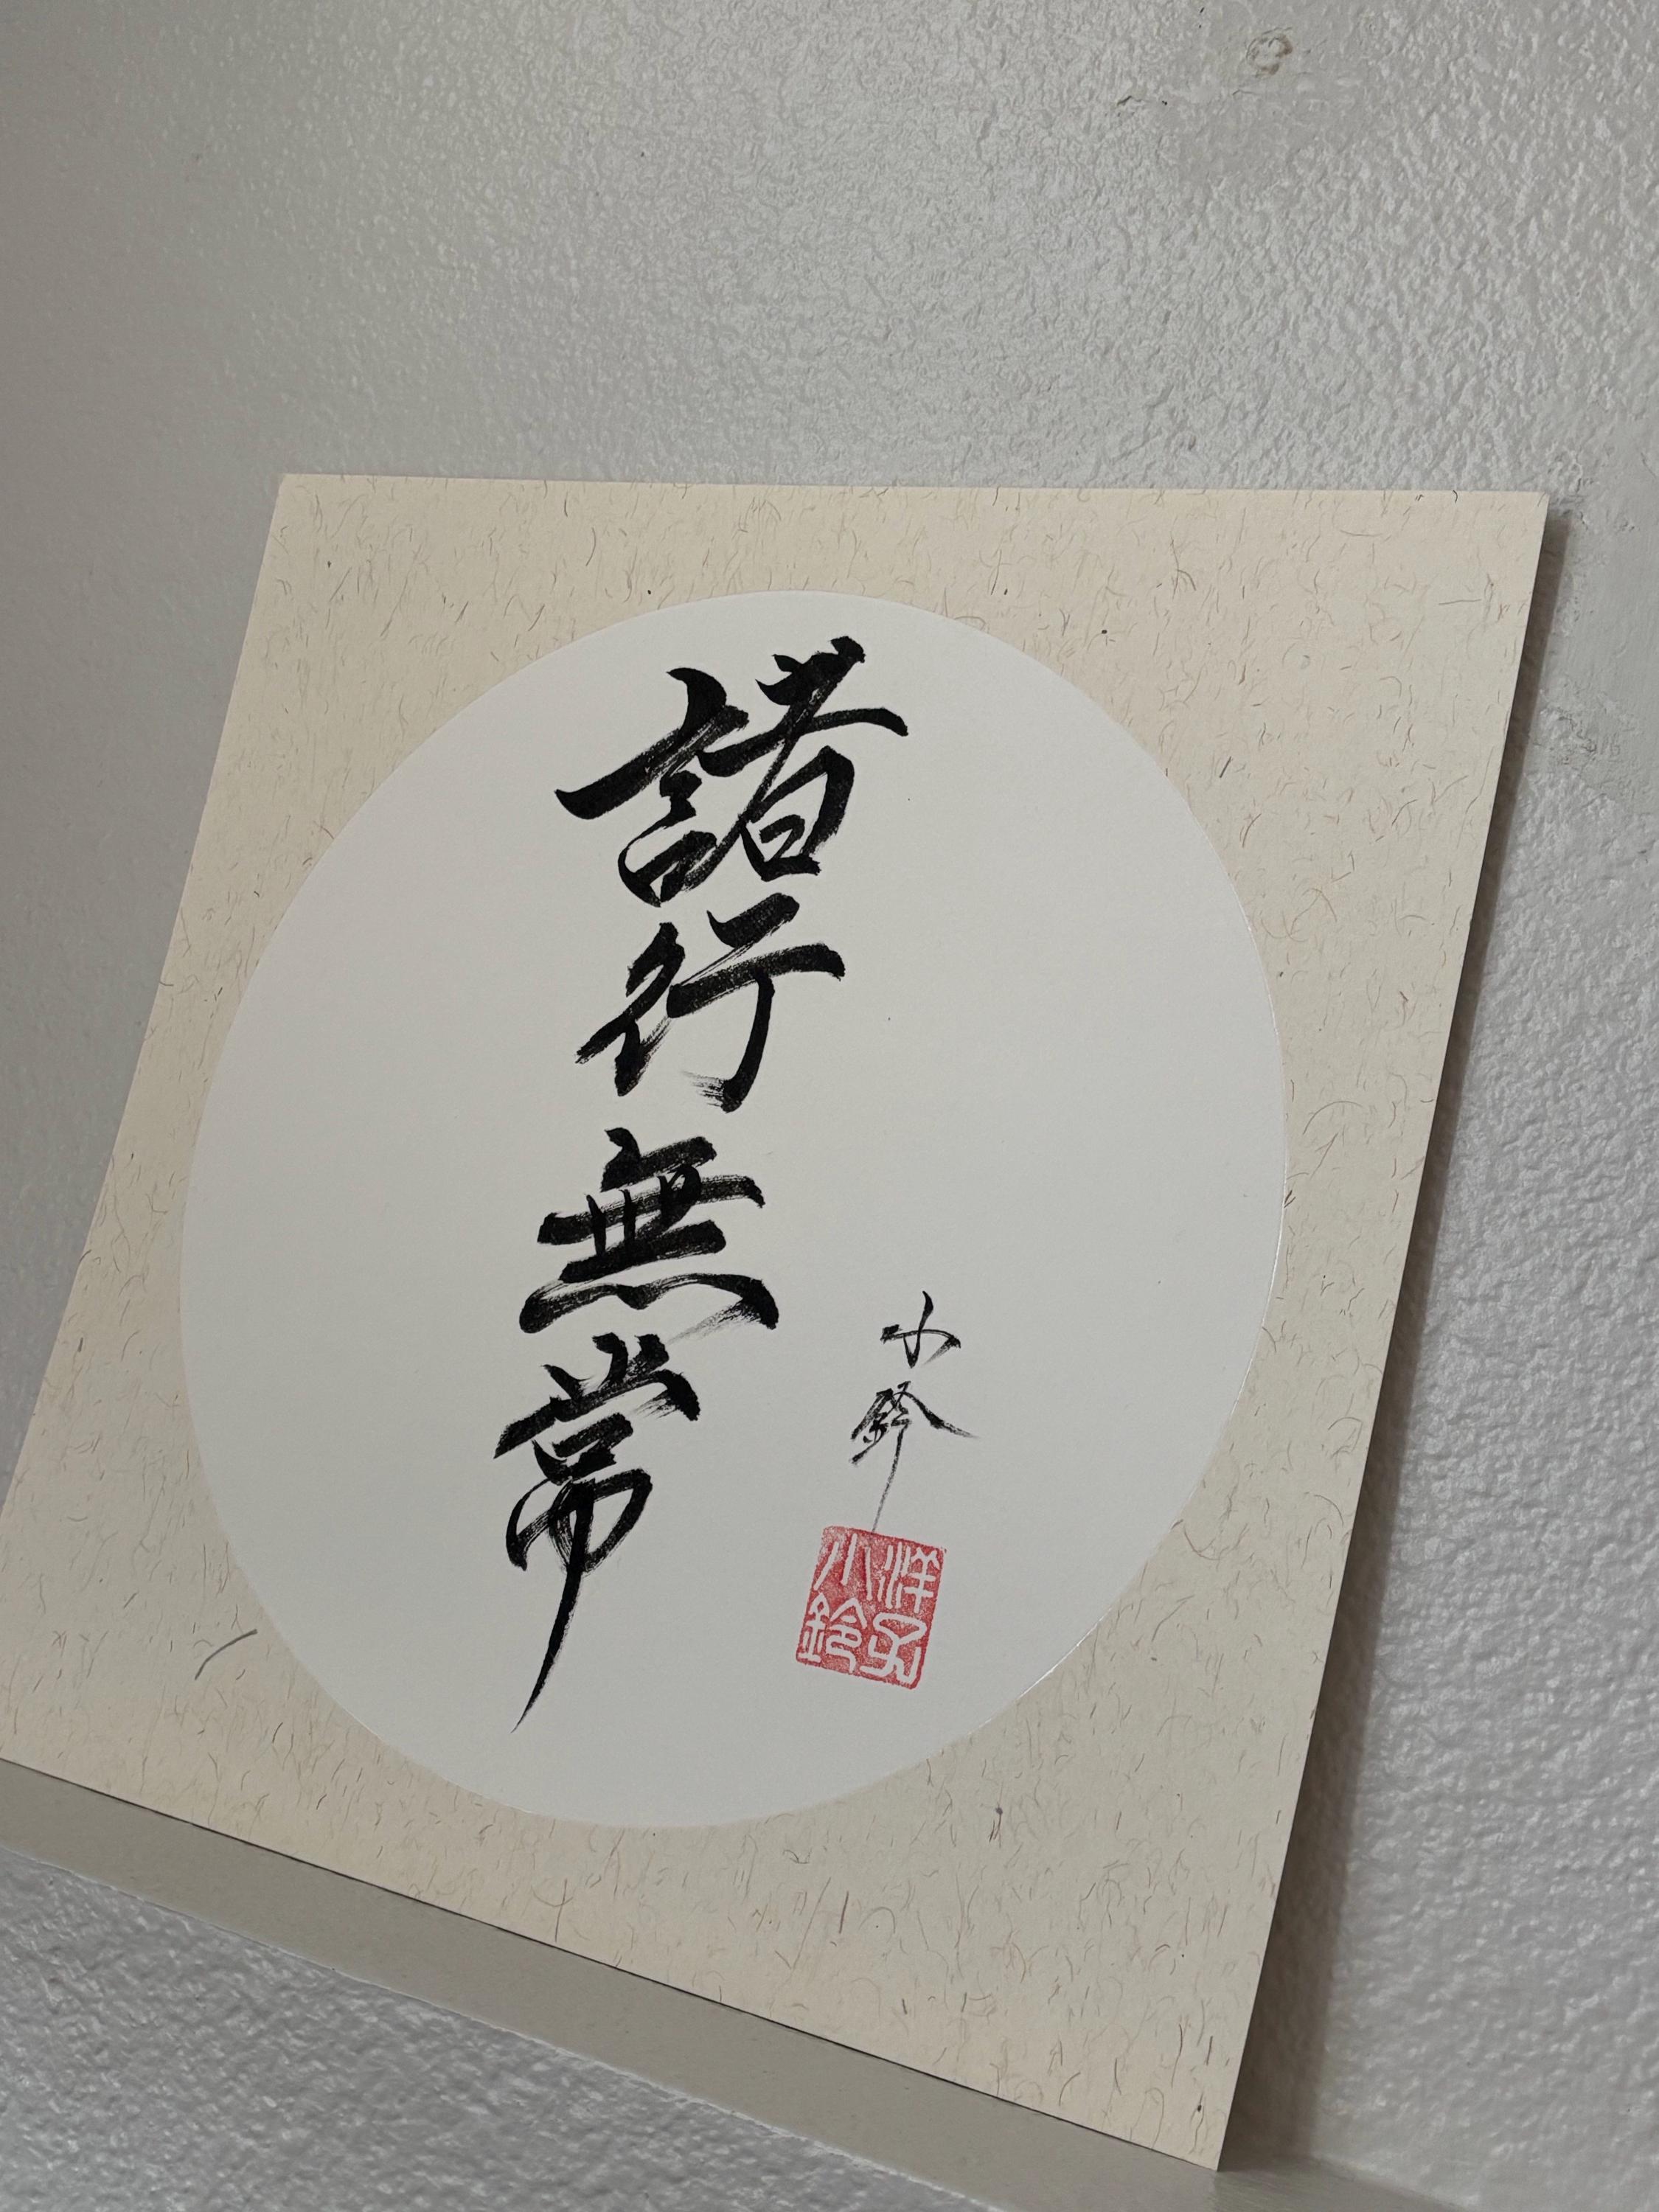 諸行無常
小鈴
洋子
小鈴